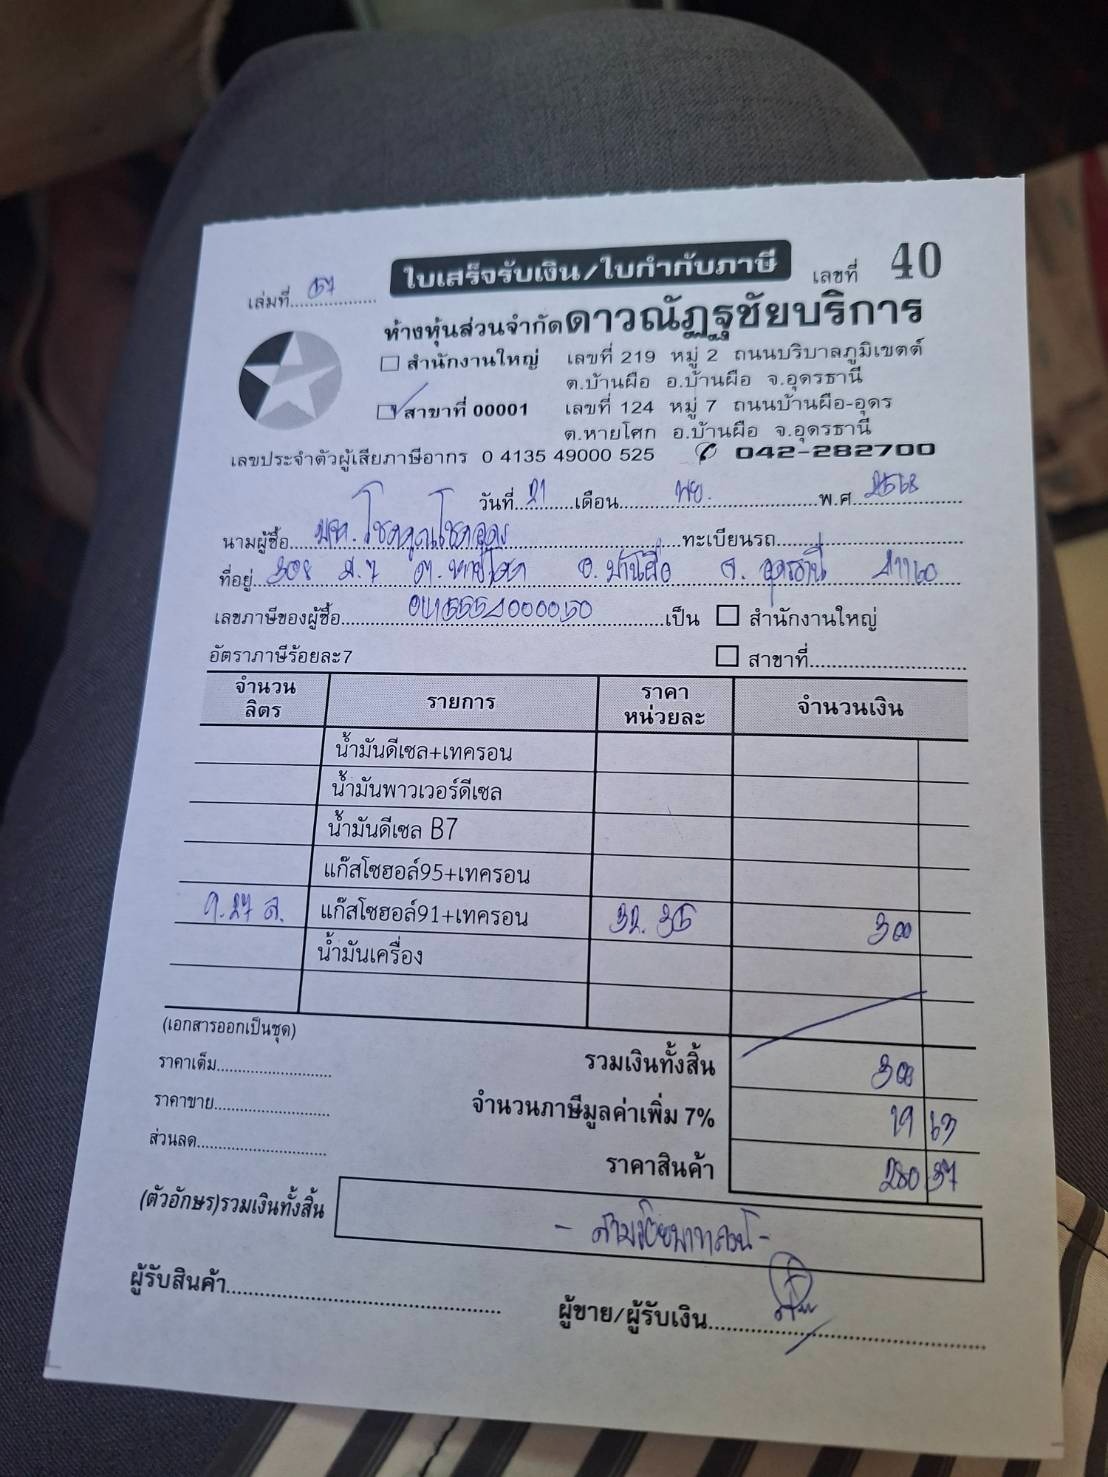 ใบเสร็จรับเงิน/ใบกำกับภาษี
เล่มที่ 67
เลขที่ 40
ห้างหุ้นส่วนจำกัดดาวณัฏฐชัยบริการ
สำนักงานใหญ่ เลขที่ 219 หมู่ 2 ถนนบริบาลภูมิเขตต์
ต.บ้านผือ อ.บ้านผือ จ.อุดรธานี
สาขาที่ 00001 เลขที่ 124 หมู่ 7 ถนนบ้านผือ-อุดร
ต.หายโศก อ.บ้านผือ จ.อุดรธานี
เลขประจำตัวผู้เสียภาษีอากร 0 4135 49000 525 042-282700
วันที่ 21 เดือน พย. พ.ศ. 2568
นามผู้ซื้อ บจก. โชคคูณโชคอุดร ทะเบียนรถ
ที่อยู่ 308 ม.7 ต.หายโศก อ.บ้านผือ จ.อุดรธานี 41160
เลขภาษีของผู้ซื้อ เป็น สำนักงานใหญ่
อัตราภาษีร้อยละ7 สาขาที่
จำนวนลิตร รายการ ราคาหน่วยละ จำนวนเงิน
น้ำมันดีเซล+เทครอน
น้ำมันพาวเวอร์ดีเซล
น้ำมันดีเซล B7
แก๊สโซฮอล์95+เทครอน
9.27 ล. แก๊สโซฮอล์91+เทครอน 32.35 300
น้ำมันเครื่อง
(เอกสารออกเป็นชุด)
ราคาเต็ม รวมเงินทั้งสิ้น 300
ราคาขาย จำนวนภาษีมูลค่าเพิ่ม 7% 19 63
ส่วนลด ราคาสินค้า 280 37
(ตัวอักษร)รวมเงินทั้งสิ้น - สามร้อยบาทถ้วน -
ผู้รับสินค้า ผู้ขาย/ผู้รับเงิน